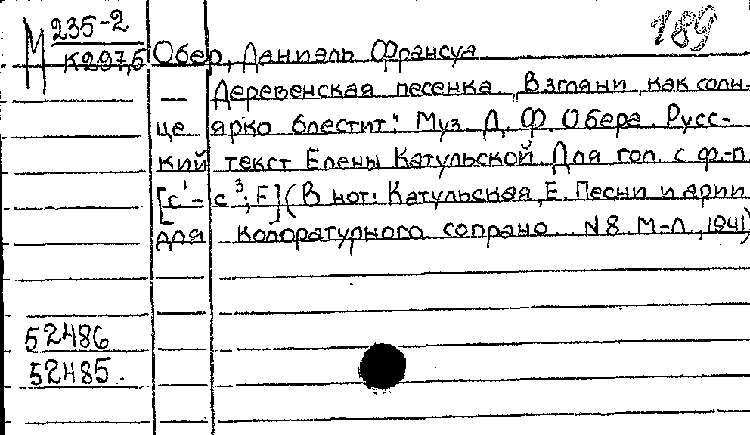 М 235-2
К297,5
189
Обер, Даниэль Франсуа
— Деревенская песенка „Взгляни, как солн-
це ярко блестит". Муз. Д. Ф. Обера. Русс-
кий текст Елены Катульской. Для гол. с ф.-п.
[c¹ - c³; F] (В нот: Катульская, Е. Песни и арии
для колоратурного сопрано. N8. М-Л, 1941)
52486
52485.